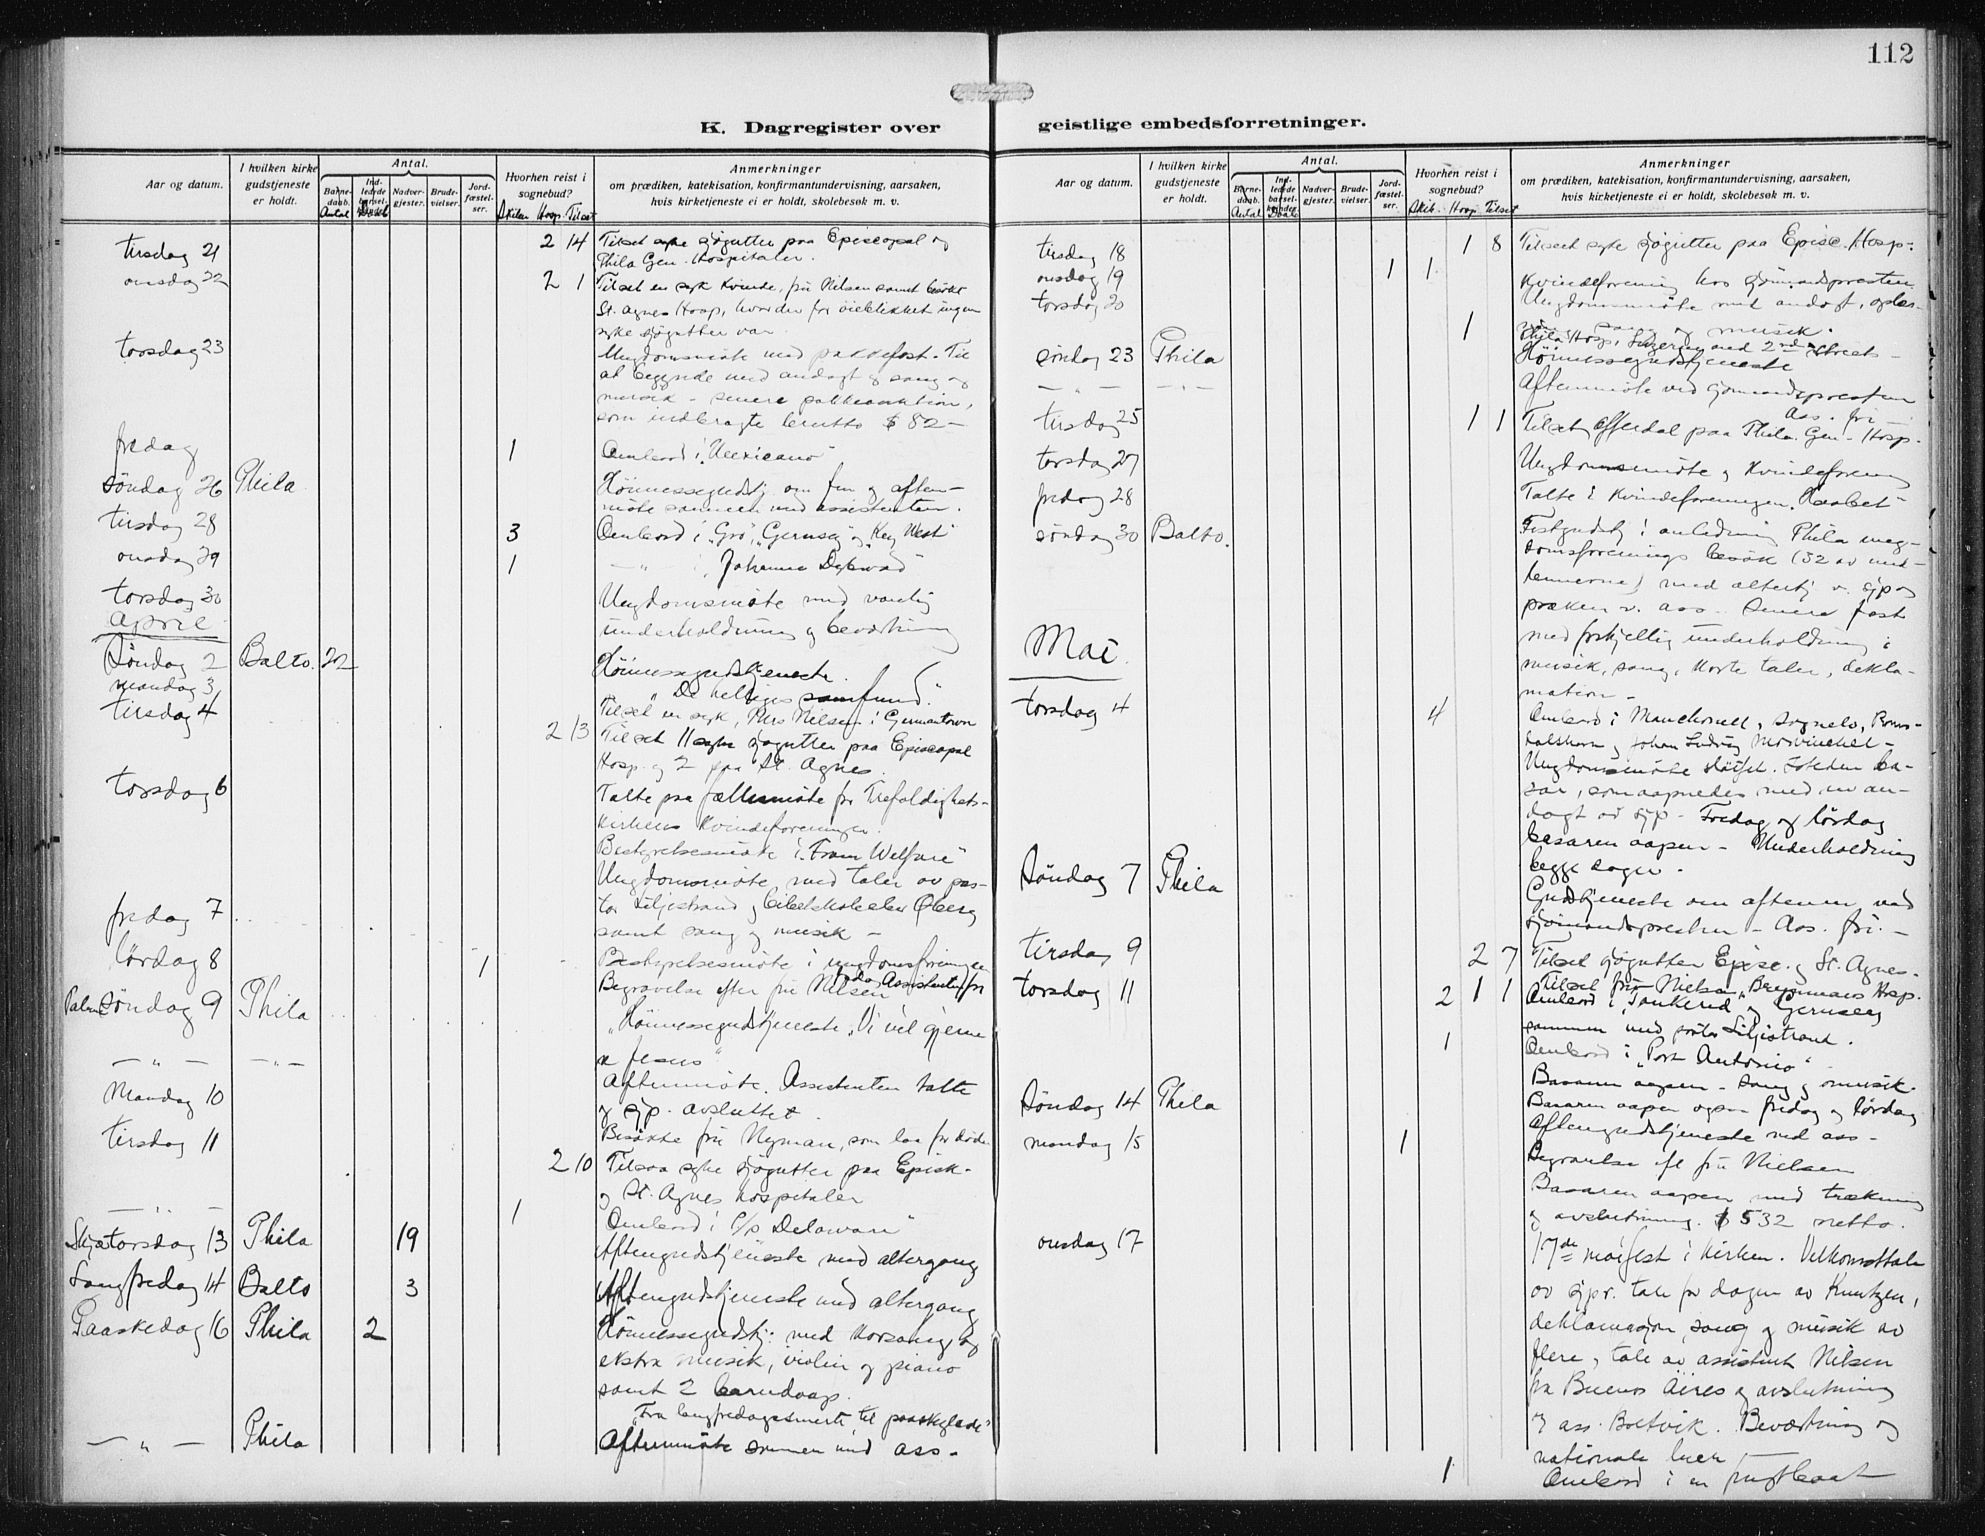 112
K. Dagregister over geistlige embedsforretninger.
Aar og datum.
I hvilken kirke gudstjeneste er holdt.
Antal.
Barnedaab.
Indledede barselkvinder
Nadvergjester.
Brudevielser.
Jordfæstelser.
Hvorhen reist i sognebud?
Anmerkninger
om prædiken, katekisation, konfirmantundervisning, aarsaken,
hvis kirketjeneste ei er holdt, skolebesøk m. v.
Antal Skiber Hosp. Tilset
tirsdag 21 2 14 Tilset syke sjøgutter paa Episcopal og
Phila Gen. Hospitaler.
onsdag 22 2 1 Tilset en syk Kvinde, fru Nilsen samt besøkt
St. Agnes Hosp, hvor der for øieblikket ingen
syke sjøgutter var.
torsdag 23 Ungdomsmøte med pakkefest. Til
at begynde med andagt og sang og
musik - senere pakkeauktion,
som indbragte brutto $ 82 -
fredag 1 Ombord i "Mexicano"
søndag 26 Phila Høimessegudstj. om fm og aften-
møte sammen med assistenten.
tirsdag 28 3 Ombord i "Gro", "Gernsey og "Key West"
onsdag 29 1 - " - i "Johanne Dybwad"
torsdag 30 Ungdomsmøte med vanlig
underholdning og bevertning
April
Søndag 2 Balto. 22 Høimessegudstjeneste.
"De helliges samfund."
mandag 3 Tilset en syk, Mrs Nilsen i Germantown
tirsdag 4 2 13 Tilset 11 syke sjøgutter paa Episcopal
Hosp. og 2 paa St. Agnes.
torsdag 6 Talte paa fællesmøte for Trefoldigheds-
kirkens Kvindeforeninger.
Bestyrelsesmøte i "From Welfare"
Ungdomsmøte med taler av pas-
tor Liljestrand og bibelskoleelev Øberg
samt sang og musik -
fredag 7 Bestyrelsesmøte i ungdomsforeningen
lørdag 8 1 Begravelse efter fru Nilsen
Palmesøndag 9 Phila "Høimessegudstjeneste. "Vi vil gjerne
se Jesus"
- " - - " - Aftenmøte. Assistenten talte
og sjp. avsluttet.
Mandag 10 Besøkte fru Nyman, som laa for døden
tirsdag 11 2 10 Tilsaa syke sjøgutter paa Episk.
og St. Agnes Hospitaler
- " - 1 Ombord i S/S Delaware"
Skjærtorsdag 13 Phila 19 Aftengudstjeneste med altergang
Langfredag 14 Balto 3 Aftengudstjeneste med altergang
Paaskedag 16 Phila 2 Høimessegudstj: med Korsang og
ekstra musik, violin og piano
samt 2 barnedaap.
"Fra langfredagssmerte til paaskeglæde"
- " - Phila Aftenmøte sammen med ass.
Aar og datum.
I hvilken kirke gudstjeneste er holdt.
Antal.
Barnedaab.
Indledede barselkvinder
Nadvergjester.
Brudevielser.
Jordfæstelser.
Hvorhen reist i sognebud?
Anmerkninger
om prædiken, katekisation, konfirmantundervisning, aarsaken,
hvis kirketjeneste ei er holdt, skolebesøk m. v.
Antal Skib. Hosp. Tilset
tirsdag 18 1 8 Tilseet syke sjøgutter paa Episc. Hosp.
onsdag 19 1 1 Kvindeforening hos sjømandspresten
torsdag 20 Ungdomsmøte med andagt, oples-
ning, sang og musik.
1 Phila Hosp, 2nd Street -
søndag 23 Phila Høimessegudstjeneste
- " - - " - Aftenmøte ved sjømandspresten
Ass. fri -
tirsdag 25 1 1 Tilset Offerdal paa Phila. Gen. Hosp.
torsdag 27 Ungdomsmøte og Kvindeforening
fredag 28 Talte i Kvindeforeningen "Haabet"
søndag 30 Balto. Festgudstj i anledning Phila ung-
domsforenings besøk (32 av med-
lemmerne) med altertj v. sjp og
præken v. ass. Senere fest
med forskjellig underholdning i
musik, sang, korte taler, dekla-
mation -
Mai
torsdag 4 4 Ombord i Manchonell, Sognelv, Roms-
dalshorn og Johan Ludvig Mowinckel -
Ungdomsmøte sløifet. Isteden ba-
sar, som aapnedes med en an-
dagt av sjp - Fredag og lørdag
basaren aapen - Underholdning
begge dager.
Søndag 7 Phila Gudstjeneste om aftenen ved
sjømandspresten - Ass. fri. -
tirsdag 9 2 7 Tilset sjøgutter Episc. og St. Agnes.
torsdag 11 2 1 1 Tilset fru Nielsen, Hosp.
Ombord i "Tankerud og Gernsey
sammen med pastor Liljestrand.
1 Ombord i "Port Antonio"
Basaren aapen - sang og musik.
Basaren aapen ogsaa fredag og lørdag
Søndag 14 Phila Aftengudstjeneste ved ass -
mandag 15 1 Begravelse eft fru Nielsen
Basaren aapen med trækning
og avslutning. $ 532 netto.
onsdag 17 17de maifest i Kirken. Velkomsttale
av sjpr. tale for dagen av Knutzen,
deklamasjon, sang og musik av
flere, tale av assistent Nilsen
fra Buenos Aires og avslutning
v ass. Boltvik. Bevertning og
nationale leker
1 Ombord i en fragtbaat